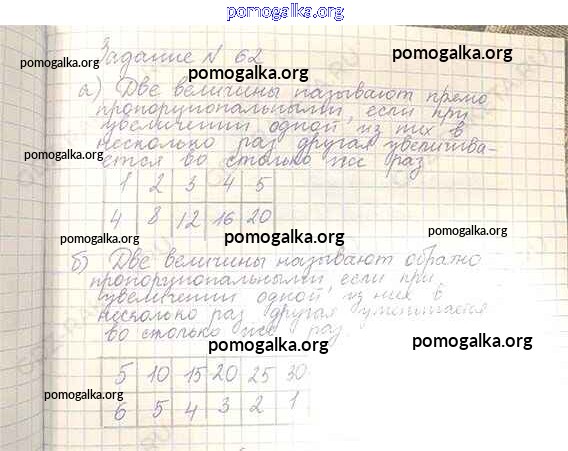 pomogalka.org
Задание N 62
pomogalka.org
pomogalka.org
pomogalka.org
а) Две величины называют прямо
пропорциональными, если при
увеличении одной из них в
несколько раз другая увеличива-
ется во столько же раз
pomogalka.org
1 2 3 4 5
4 8 12 16 20
pomogalka.org
pomogalka.org
pomogalka.org
б) Две величины называют обратно
пропорциональными, если при
увеличении одной из них в
несколько раз другая уменьшается
во столько же раз.
pomogalka.org
pomogalka.org
5 10 15 20 25 30
6 5 4 3 2 1
pomogalka.org
pomogalka.org